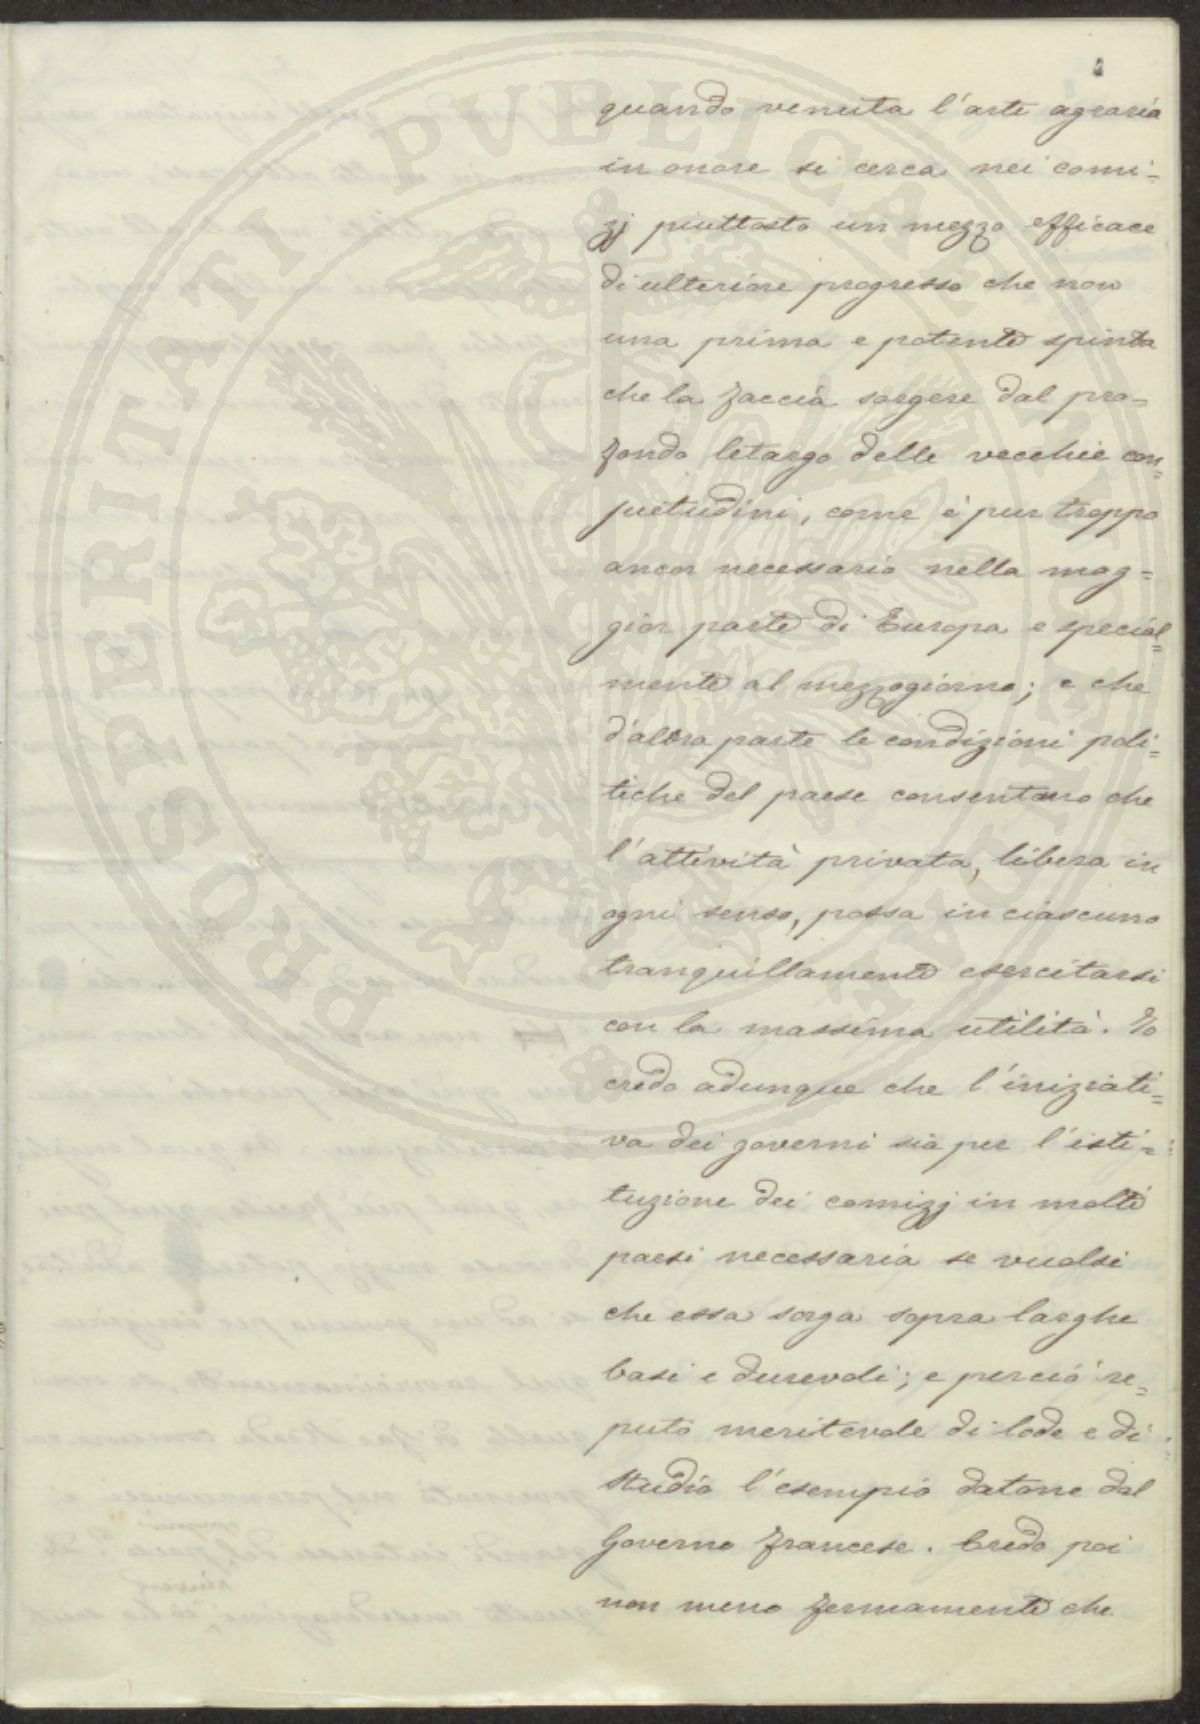 PROSPERITATI PUBLICAE AUGENDAE
quando venuta l'arte agraria
in onore si cerca nei comi=
zj piuttosto un mezzo efficace
di ulteriore progresso che non
una prima e potente spinta
che la faccia sorgere dal pro=
fondo letargo delle vecchie con=
suetudini, come è pur troppo
ancor necessario nella mag=
gior parte di Europa e special=
mente al mezzogiorno; e che
d'altra parte le condizioni poli=
tiche del paese consentano che
l'attività privata, libera in
ogni senso, possa in ciascuno
tranquillamente esercitarsi
con la massima utilità. Io
credo adunque che l'iniziati=
va dei governi sia per l'isti=
tuzione dei comizj in molti
paesi necessaria se vuolsi
che essa sorga sopra larghe
basi e durevoli; e perciò re=
puto meritevole di lode e di
studio l'esempio datone dal
Governo francese. Credo poi
non meno fermamente che